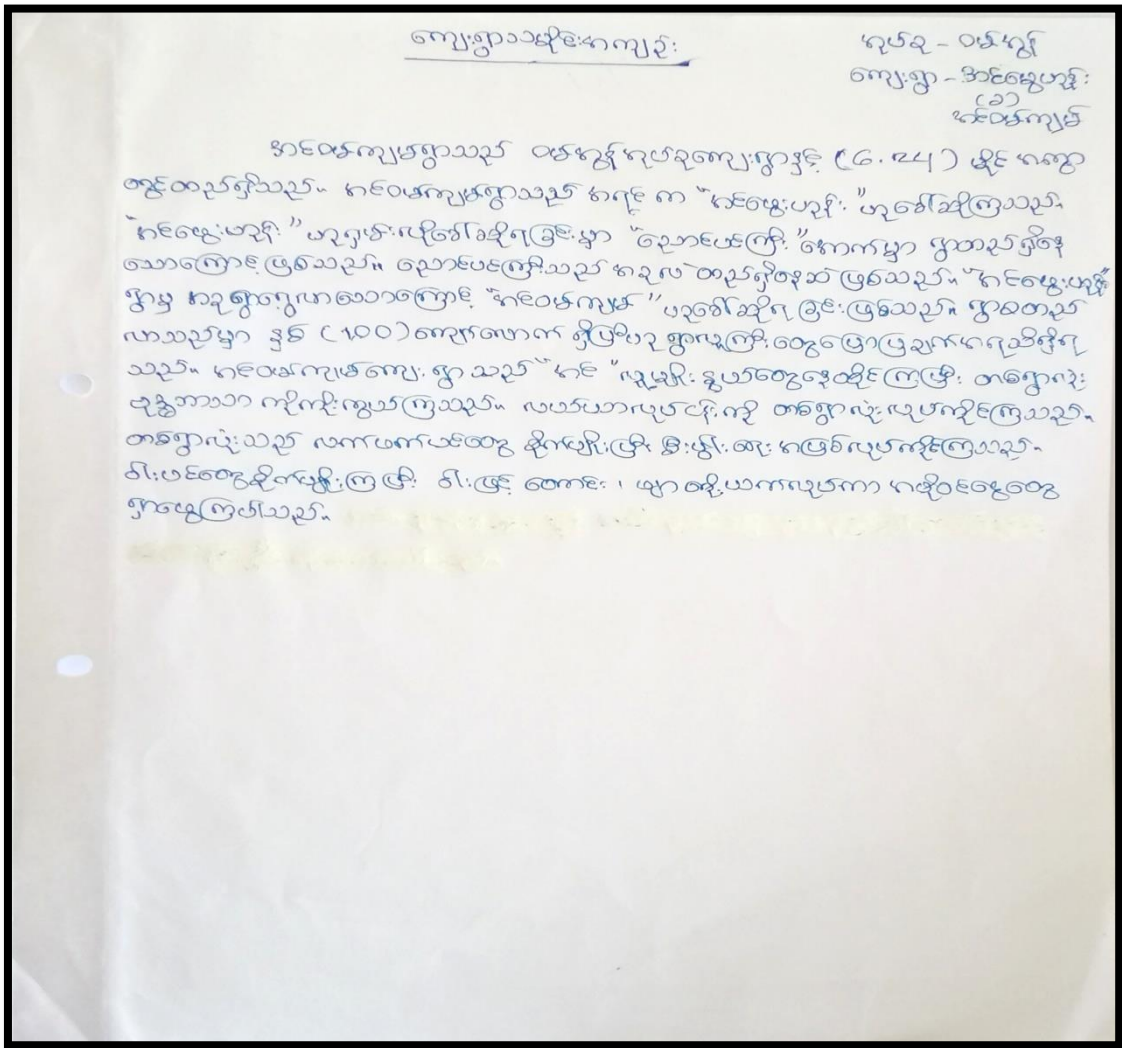 ကျေးရွာသမိုင်းအကျဉ်း
အုပ်စု - ဝမ်အွန်
ကျေးရွာ - အင်မွေဟုန်း
(ခ)
အင်ဝမ်ကျမ်
အင်ဝမ်ကျမ်ရွာသည် ဝမ်အွန်အုပ်စုကျေးရွာနှင့် (၆.၃၄) မိုင် အကွာ
တွင်တည်ရှိသည်။ အင်ဝမ်ကျမ်ရွာသည် အရင် က "အင်မွေးဟုန်း" ဟုခေါ်ဆိုကြသည်။
"အင်မွေးဟုန်း" ဟုရှမ်းလိုခေါ်ဆိုရခြင်းမှာ "ညောင်ပင်ကြီး" အောက်မှာ ရွာတည်ရှိနေ
သောကြောင့်ဖြစ်သည်။ ညောင်ပင်ကြီးသည် အခုလဲ တည်ရှိနေဆဲ ဖြစ်သည်။ "အင်မွေးဟုန်း"
ရွာမှ အခုရွာရွှေ့လာသောကြောင့် "အင်ဝမ်ကျမ်" ဟုခေါ်ဆိုရ ခြင်းဖြစ်သည်။ ရွာစတည်
လာသည်မှာ နှစ် (၁၀၀) ကျော်လောက် ရှိပြီဟု ရွာလူကြီးတွေပြောပြချက်အရသိရှိရ
သည်။ အင်ဝမ်ကျမ်ကျေးရွာ သည် "အင်" လူမျိုးနွယ်တွေနေထိုင်ကြပြီး တစ်ရွာလုံး
ဗုဒ္ဓဘာသာ ကိုကိုးကွယ်ကြသည်။ လယ်ယာလုပ်ငန်းကို တစ်ရွာလုံးလုပ်ကိုင်ကြသည်။
တစ်ရွာလုံးသည် လက်ဖက်ပင်တွေ စိုက်ပျိုးပြီး စီးပွါးရေး အဖြစ်လုပ်ကိုင်ကြသည်။
ဝါးပင်တွေစိုက်ပျိုးကြပြီး ဝါးဖြင့် တောင်း၊ ဖျာ တို့ယက်လုပ်ကာ အပိုဝင်ငွေတွေ
ရှာဖွေကြပါသည်။